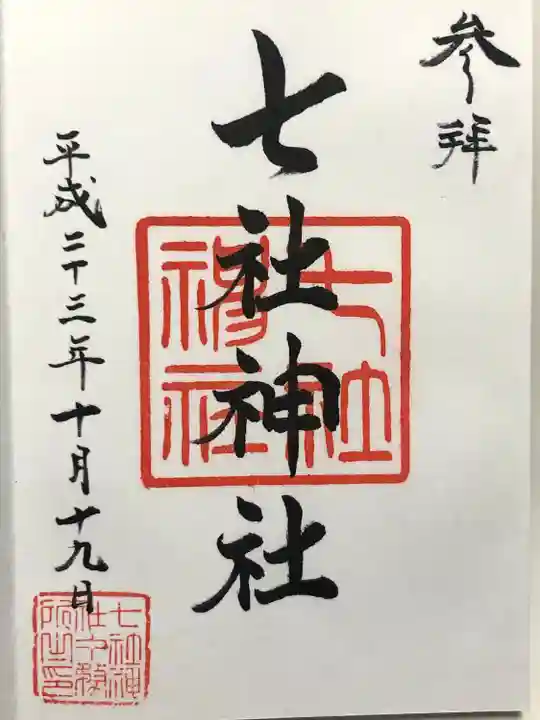 参拝
七社神社
七社
神社
平成二十三年十月十九日
七社神
社中教
所之印